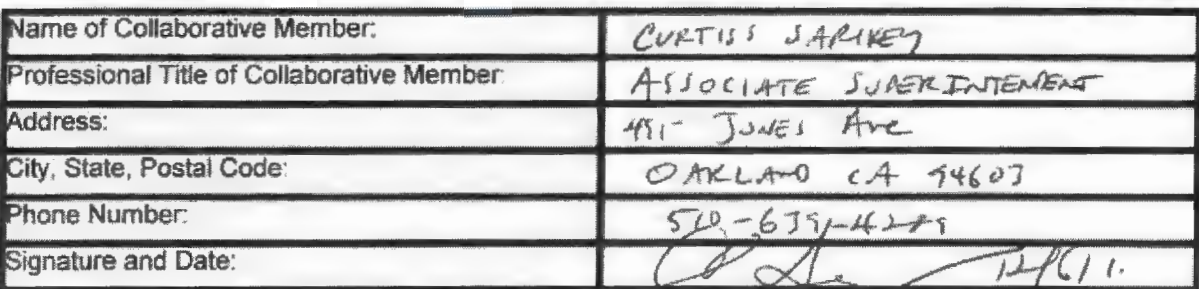 Name of Collaborative Member: CURTISS SARIKEY
Professional Title of Collaborative Member: ASSOCIATE SUPERINTENDENT
Address: JONES Ave
City, State, Postal Code: OAKLAND CA 94603
Phone Number:
Signature and Date: